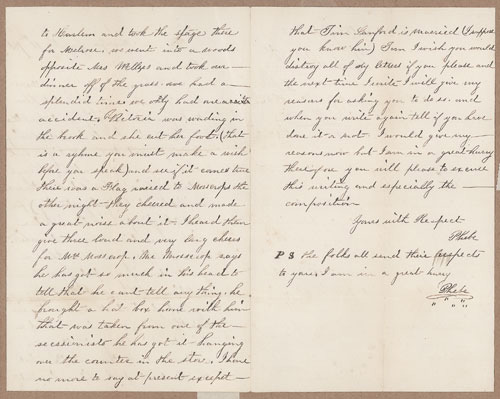 to Harlem and took the stage there
for Melrose. we went into a woods
opposite Mrs and took our
dinner off of the grass. we had a
splendid times we only had one
accident, was wading in
the brook and she cut her foot. (that
is a ryhme you must make a wish
before you speak) and see if it comes true
there was a Flag raised to Mosscrops the
other night they cheered and made
a great noise about it I heard them
give three loud and very long cheers
for Mrs Mosscrop. Mr Mosscrop says
he has got so much in his head to
tell that he cant tell any thing. he
brought a hat box home with him
that was taken from one of the
secessionists he has got it hanging
over the counter in the store. I have
no more to say at present except
that Tim Sanford is married (I suppose
you know him) Tim I wish you would
distroy all of my letters if you please and
the next time I write I will give my
reasons for asking you to do so. and
when you write again tell if you have
done it or not. I would give my
reasons now but I am in a great hurry
therefore you will please to excuse
this writing and especially the
composition
Yours with Respect
Phebe
P S the folks all send their respects
to you. I am in a great hury
Phebe